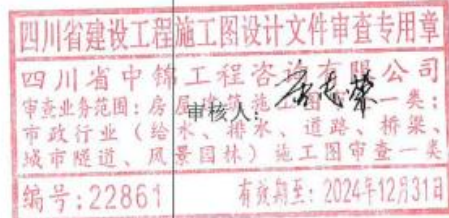 四川省建设工程施工图设计文件审查专用章
四川省中锦工程咨询有限公司
审查业务范围：房屋建筑施工图审查一类；
审核人：
市政行业（给水、排水、道路、桥梁、
城市隧道、风景园林）施工图审查一类
编号：22861 有效期至：2024年12月31日